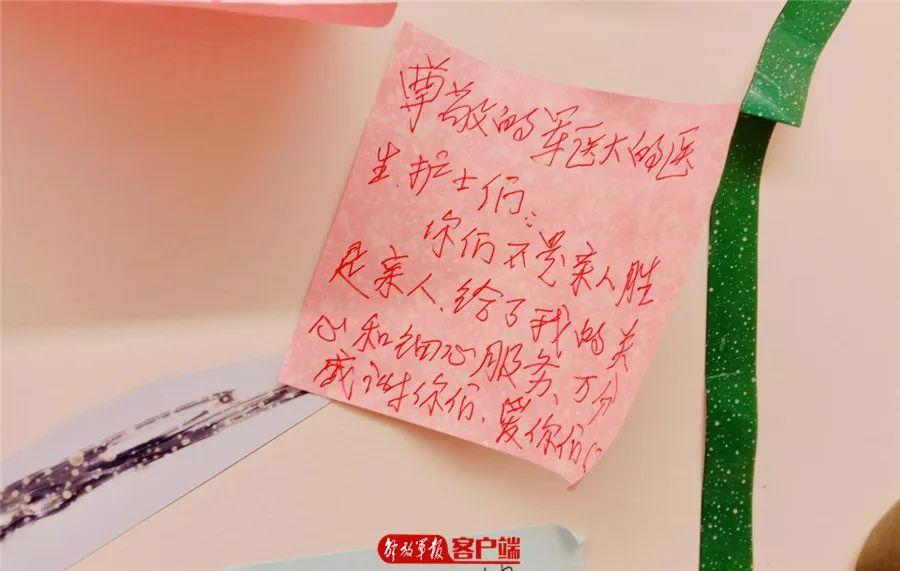 尊敬的军医大的医
生、护士们:
你们不是亲人胜
是亲人、给了我的关
心和细心服务、万分
感谢你们、爱你们
解放军报 客户端